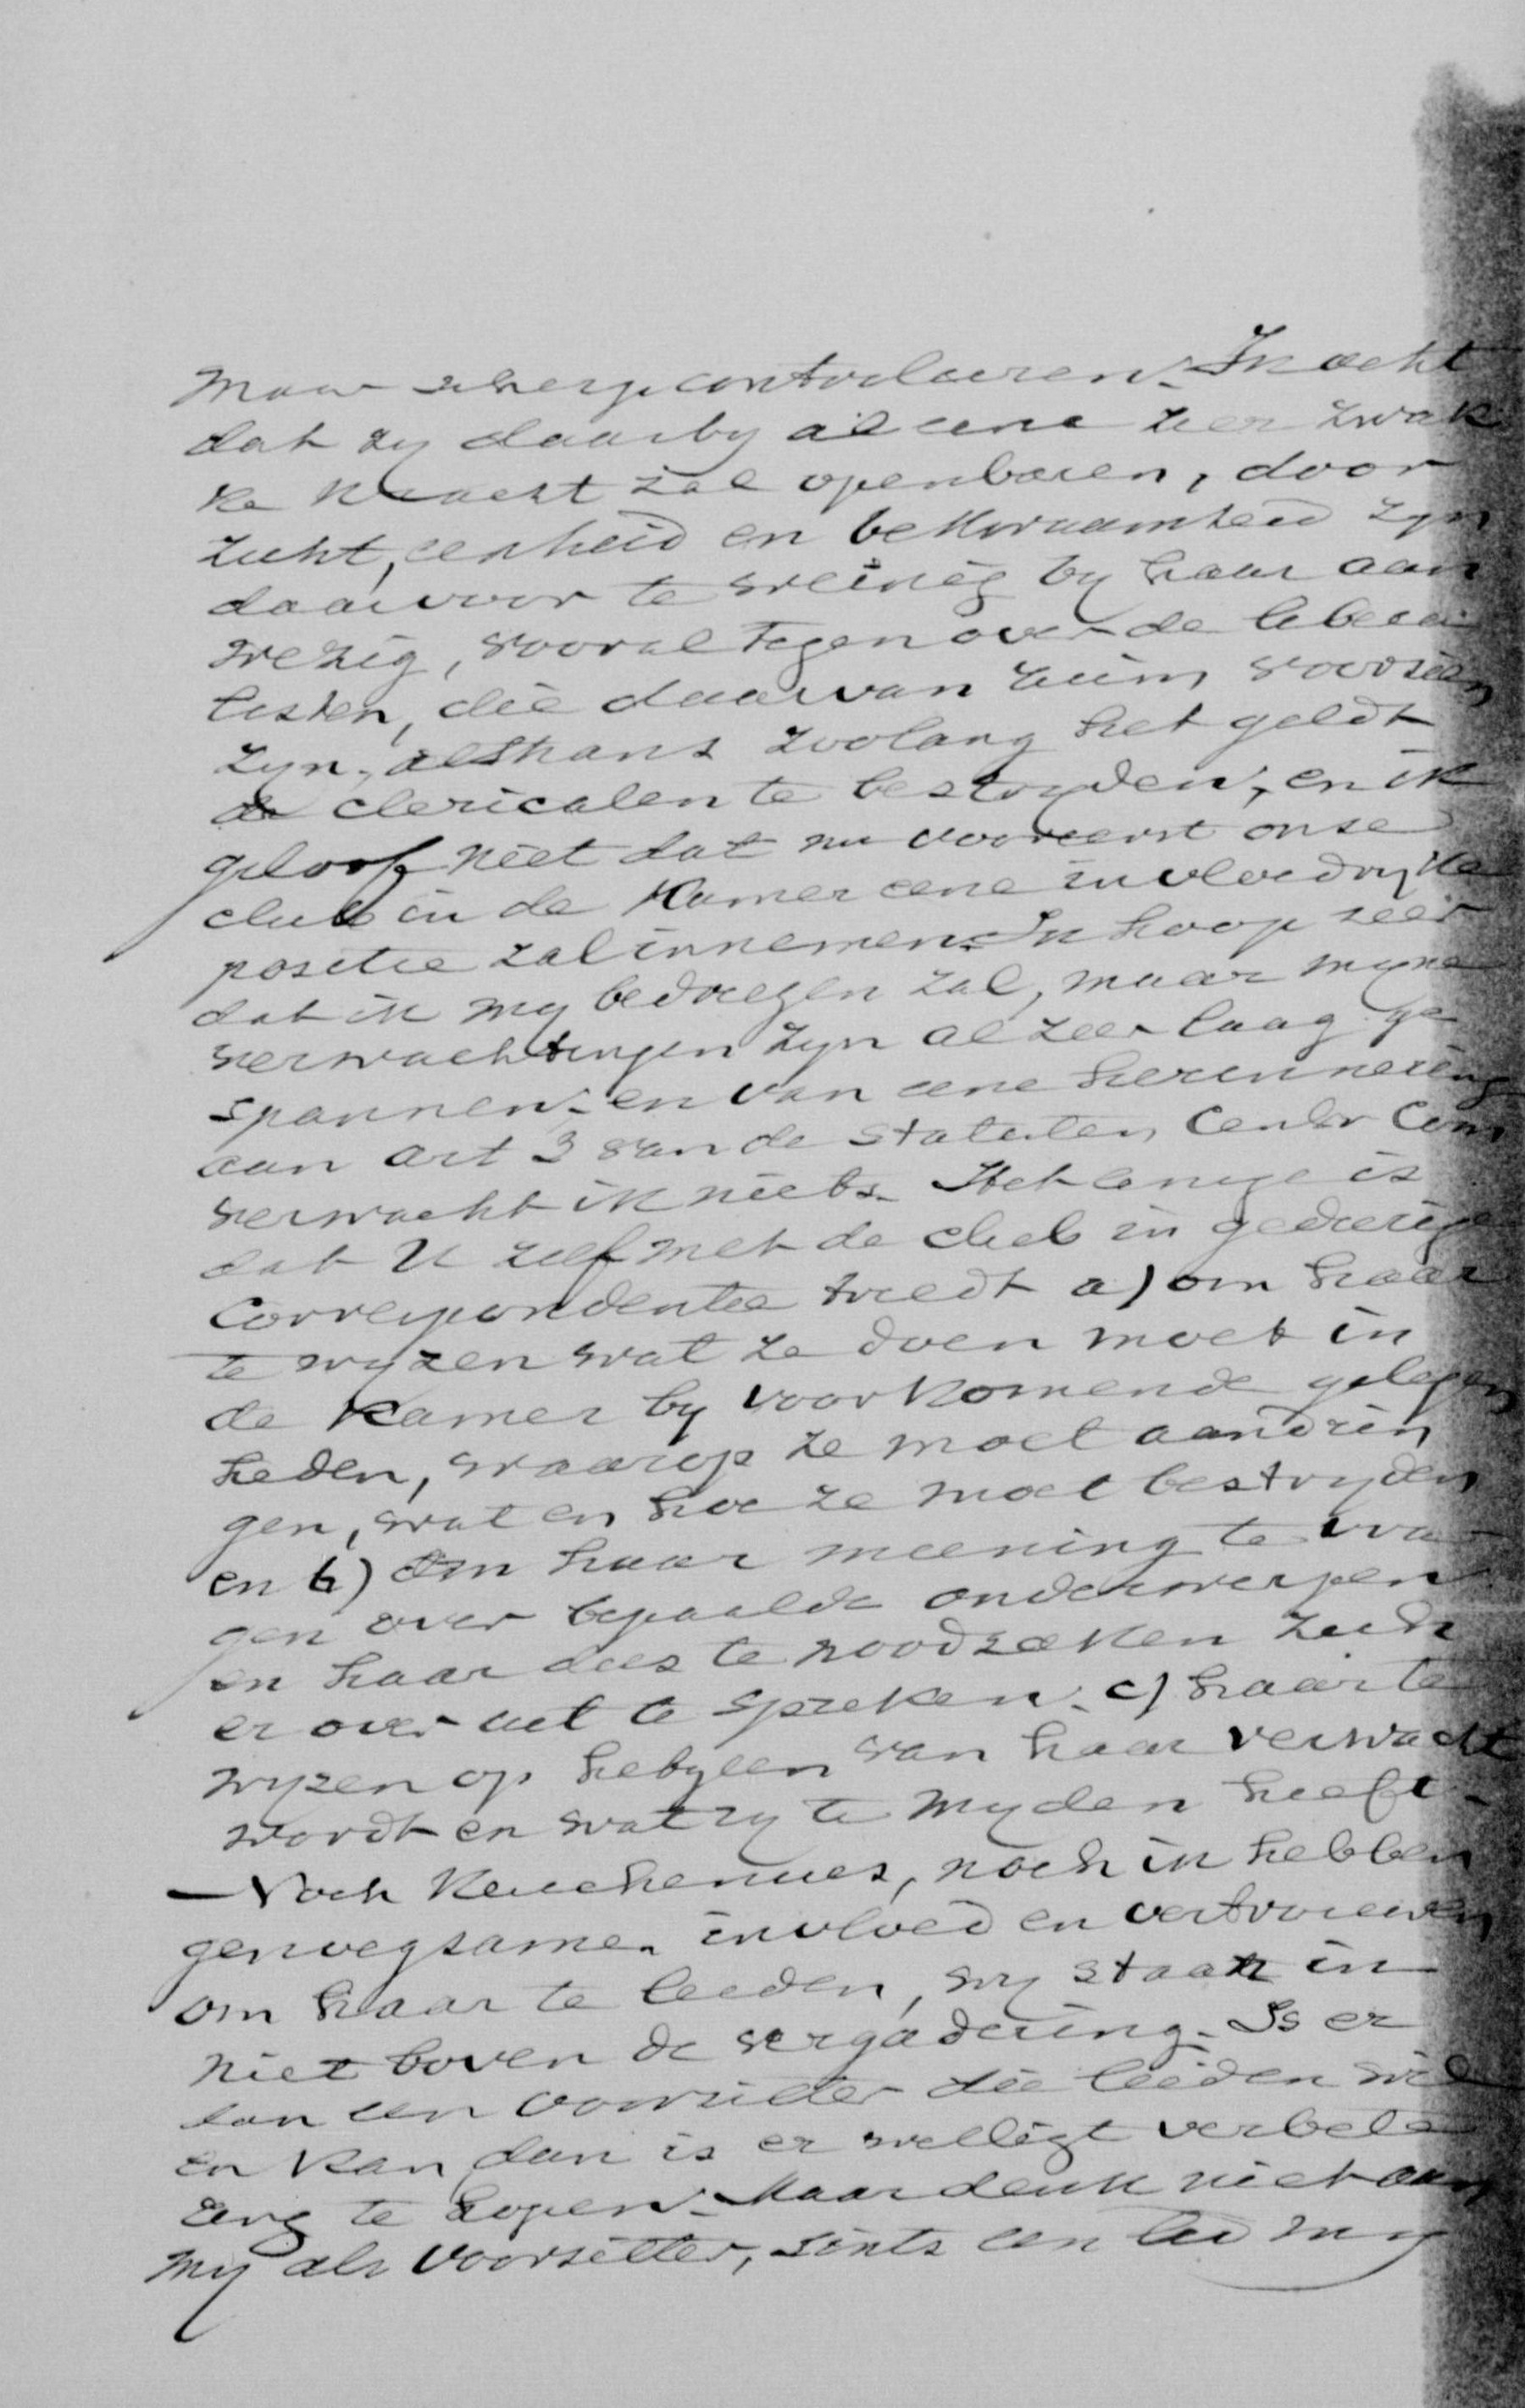 maar scherp controleeren. Ik acht
dat zy daarby al eene zeer zwak
ke kracht zal openbaren, door
zicht, eenheid en bekwaamheid zyn
daarvoor te weinig by haar aan
wezig, vooral tegenover de libera
listen, die daarvan ruim voorzien
zyn, althans zoolang het geldt
de clericalen te bestryden, en ik
geloof niet dat nu vooreerst onse
club in de Kamer eene invloedryke
positie zal innemen. Ik hoop zeer
dat ik my bedriegen zal, maar myne
verwachtingen zyn al zeer laag ge
spannen en van eene herinnering
aan art 3 van de statuten Centr Com
verwacht ik niets. Het eenige is
dat U zelf met de club in gedurige
correspondentie treedt a) om haar
te wyzen wat ze doen moet in
de Kamer by voorkomende gelegen
heden, waarop ze moet aandrin
gen, wat en hoe ze moet bestryden
en b) om haar meening te vra
gen over bepaalde onderwerpen
en haar dus te noodzaken zich
er over uit te spreken. c) haar te
wyzen op hetgeen van haar verwacht
wordt en wat zy te myden heeft.
— Noch Keuchenius, noch ik hebben
genoegsame invloed en vertrouwen
om haar te leiden, wy staan in
niet boven de vergadering. Is er
dan een voorzitter die leiden wil
en kan dan is er welligt verbete
ring te hopen. Maar denk niet aan
my als voorsitter, sints een lid my